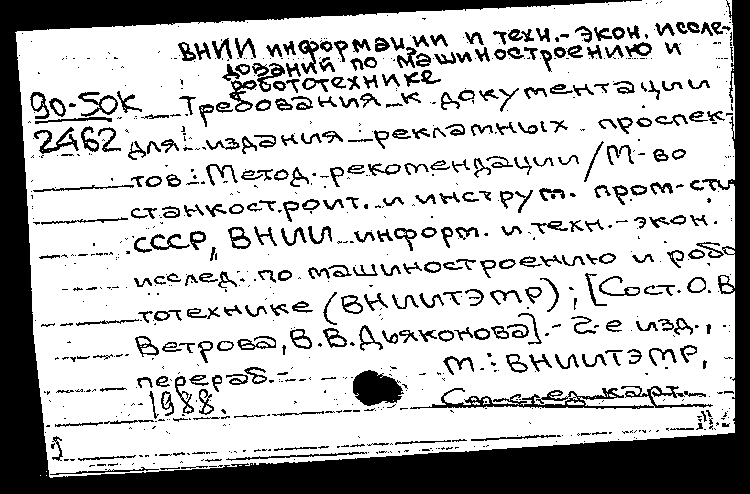 ВНИИ информации и техн.-экон. иссле-
дований по машиностроению и
робототехнике
90-50К
2462
Требования к документации
для издания рекламных проспек-
тов: Метод. рекомендации / М-во
станкостроит. и инструм. пром-сти
СССР, ВНИИ информ. и техн.-экон.
исслед. по машиностроению и робо
тотехнике (ВНИИТЭМР); [Сост. О.В
Ветрова, В.В. Дьяконова]. - 2-е изд.,
перераб. - М.: ВНИИТЭМР,
1988.
См. след. карт.